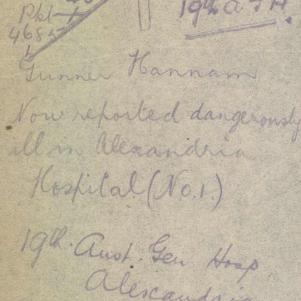 19th A G H.
Pkt
468
Gunner Hannam
Now reported dangerously
ill in Alexandria
Hospital (No.1.)
19th. Aust. Gen Hosp
Alexandria